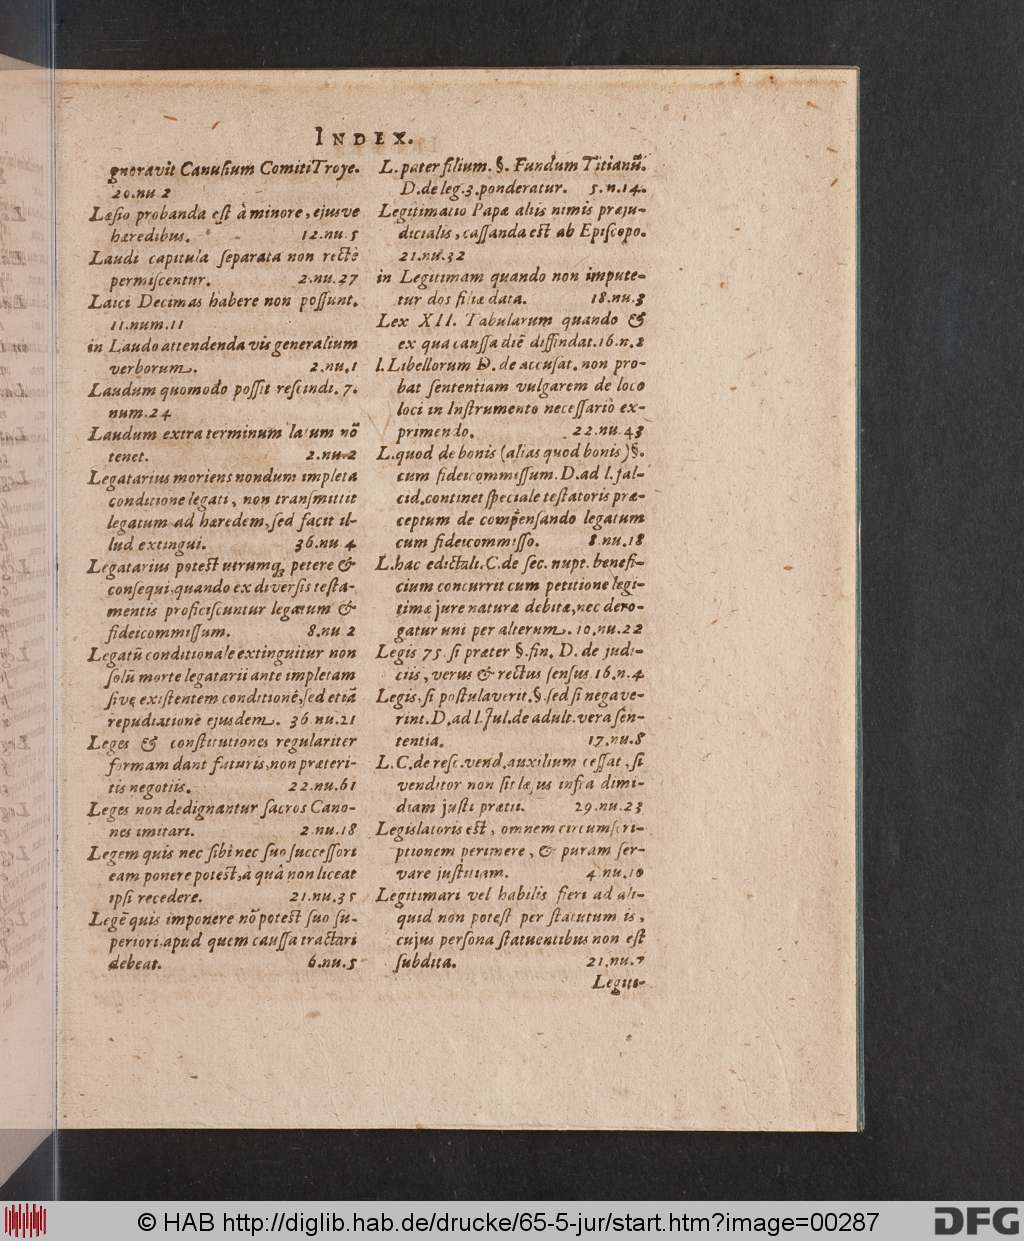 INDEX.
gnoravit Canusium Comiti Troye.
20.nu 2
Læsio probanda est à minore, ejusve
hæredibus. 12.nu.5
Laudi capitula separata non rectè
permiscentur. 2.nu.27
Laici Decimas habere non possunt.
11.num.11
in Laudo attendenda vis generalium
verborum. 2.nu.1
Laudum quomodo possit rescindi. 7.
num.24
Laudum extra terminum latum nõ
tenet. 2.nu.2
Legatarius moriens nondum impleta
conditione legati, non transmittit
legatum ad hæredem, sed facit il-
lud extingui. 36.nu 4
Legatarius potest utrumq; petere &
consequi, quando ex diversis testa-
mentis proficiscuntur legatum &
fideicommissum. 8.nu 2
Legatũ conditionale extinguitur non
solũ morte legatarii ante impletam
sive existentem conditionẽ, sed etiã
repudiatione ejusdem. 36.nu.21
Leges & constitutiones regulariter
formam dant futuris, non præteri-
tis negotiis. 22.nu.61
Leges non dedignantur sacros Cano-
nes imitari. 2.nu.18
Legem quis nec sibi nec suo successori
eam ponere potest, à quâ non liceat
ipsi recedere. 21.nu.35
Legẽ quis imponere nõ potest suo su-
periori. apud quem caussa tractari
debeat. 6.nu.5
L. pater filium. §. Fundum Titianũ.
D. de leg. 3. ponderatur. 5.n.14.
Legitimatio Papæ aliis nimis præju-
dicialis, cassanda est ab Episcopo.
21.nu.32
in Legitimam quando non impute-
tur dos filiæ data. 18.nu.3
Lex XII. Tabularum quando &
ex qua caussa diẽ diffindat. 16.n.2
l. Libellorum D. de accusat. non pro-
bat sententiam vulgarem de loco
loci in Instrumento necessariò ex-
primendo. 22.nu.43
L. quod de bonis (alias quod bonis) §.
cum fideicommissum. D. ad l. fal-
cid. continet speciale testatoris præ-
ceptum de compensando legatum
cum fideicommisso. 8.nu.18
L. hac edictali. C. de sec. nupt. benefi-
cium concurrit cum petitione legi-
timæ jure naturæ debitæ, nec dero-
gatur uni per alterum. 10.nu.22
Legis 75. si præter §. fin. D. de judi-
ciis, verus & rectus sensus 16.n.4
Legis, si postulaverit. §. sed si negave-
rint. D. ad l. Jul. de adult. vera sen-
tentia. 17.nu.8
L. C. de resc. vend. auxilium cessat, si
venditor non sit læsus infra dimi-
diam justi prætii. 29.nu.23
Legislatoris est, omnem circumscri-
ptionem perimere, & puram ser-
vare justitiam. 4.nu.10
Legitimari vel habilis fieri ad ali-
quid non potest per statutum is,
cujus persona statuentibus non est
subdita. 21.nu.7
Legiti-
© HAB http://diglib.hab.de/drucke/65-5-jur/start.htm?image=00287
DFG